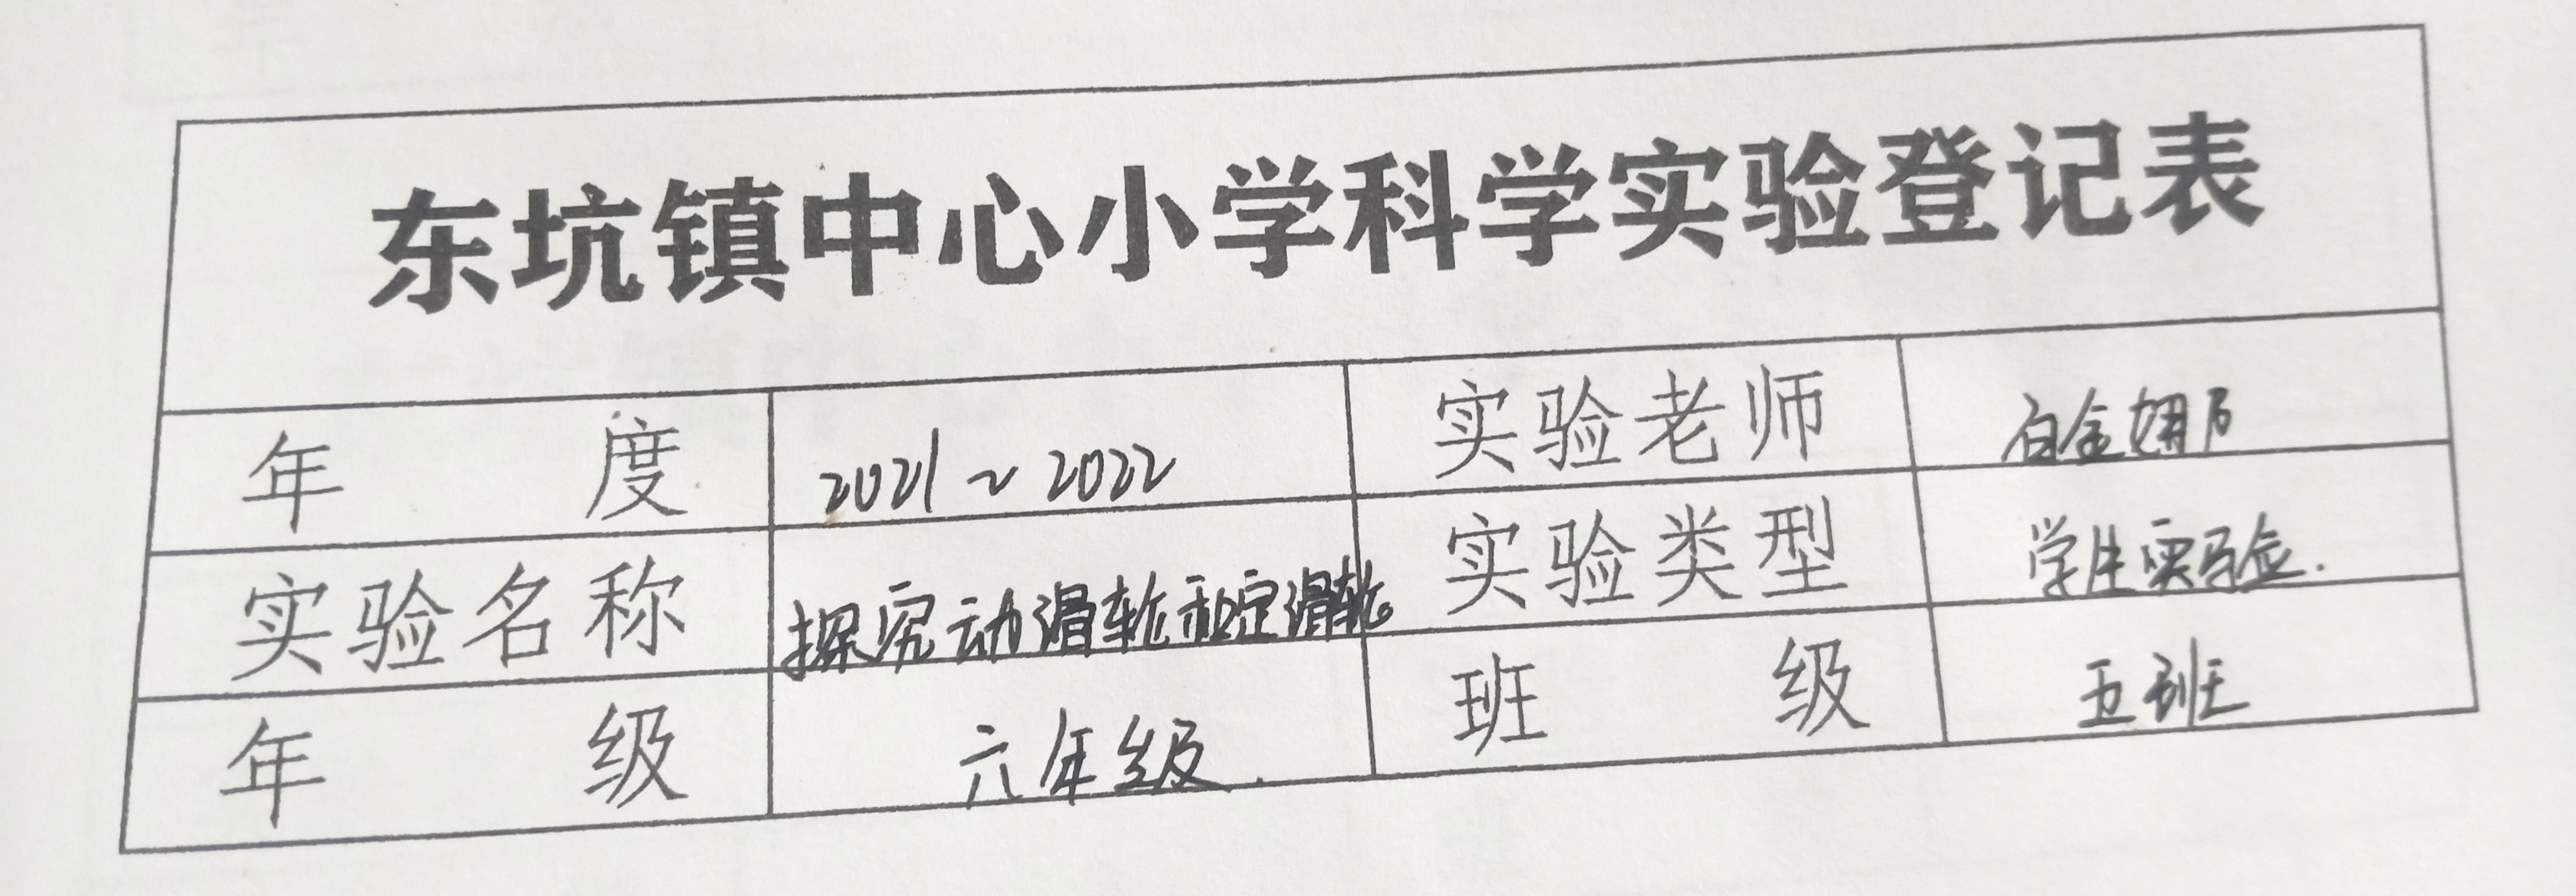 东坑镇中心小学科学实验登记表
年度 2021~2022 实验老师 白金娜
实验名称 探究动滑轮和定滑轮 实验类型 学生实验.
年级 六年级. 班级 五班